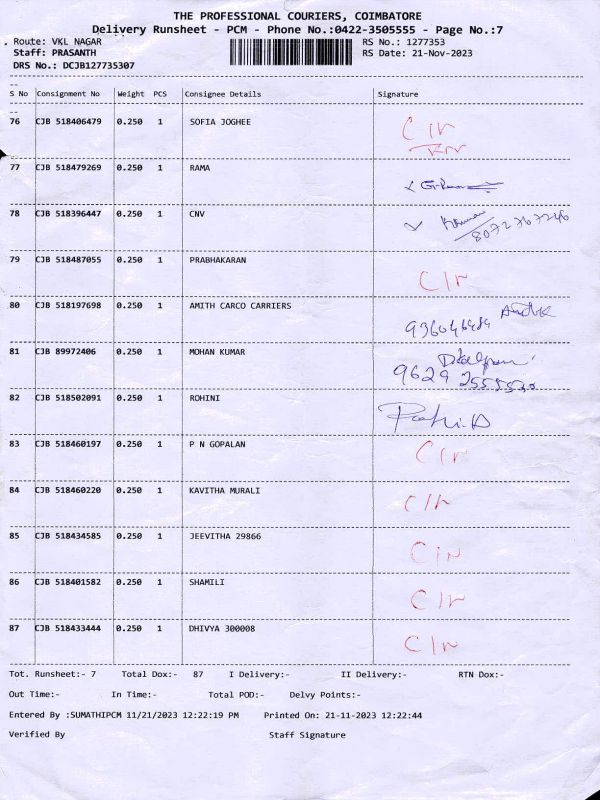 THE PROFESSIONAL COURIERS, COIMBATORE
Delivery Runsheet - PCM - Phone No.:0422-3505555 - Page No.:7
Route: VKL NAGAR RS No.: 1277353
Staff: PRASANTH RS Date: 21-Nov-2023
DRS No.: DCJB127735307
S No Consignment No Weight PCS Consignee Details Signature
76 CJB 518406479 0.250 1 SOFIA JOGHEE
77 CJB 518479269 0.250 1 RAMA
78 CJB 518396447 0.250 1 CNV
8072767246
79 CJB 518487055 0.250 1 PRABHAKARAN
80 CJB 518197698 0.250 1 AMITH CARCO CARRIERS
81 CJB 89972406 0.250 1 MOHAN KUMAR
82 CJB 518502091 0.250 1 ROHINI
83 CJB 518460197 0.250 1 P N GOPALAN
84 CJB 518460220 0.250 1 KAVITHA MURALI
85 CJB 518434585 0.250 1 JEEVITHA 29866
86 CJB 518401582 0.250 1 SHAMILI
87 CJB 518433444 0.250 1 DHIVYA 300008
Tot. Runsheet:- 7 Total Dox:- 87 I Delivery:- II Delivery:- RTN Dox:-
Out Time:- In Time:- Total POD:- Delvy Points:-
Entered By :SUMATHIPCM 11/21/2023 12:22:19 PM Printed On: 21-11-2023 12:22:44
Verified By Staff Signature